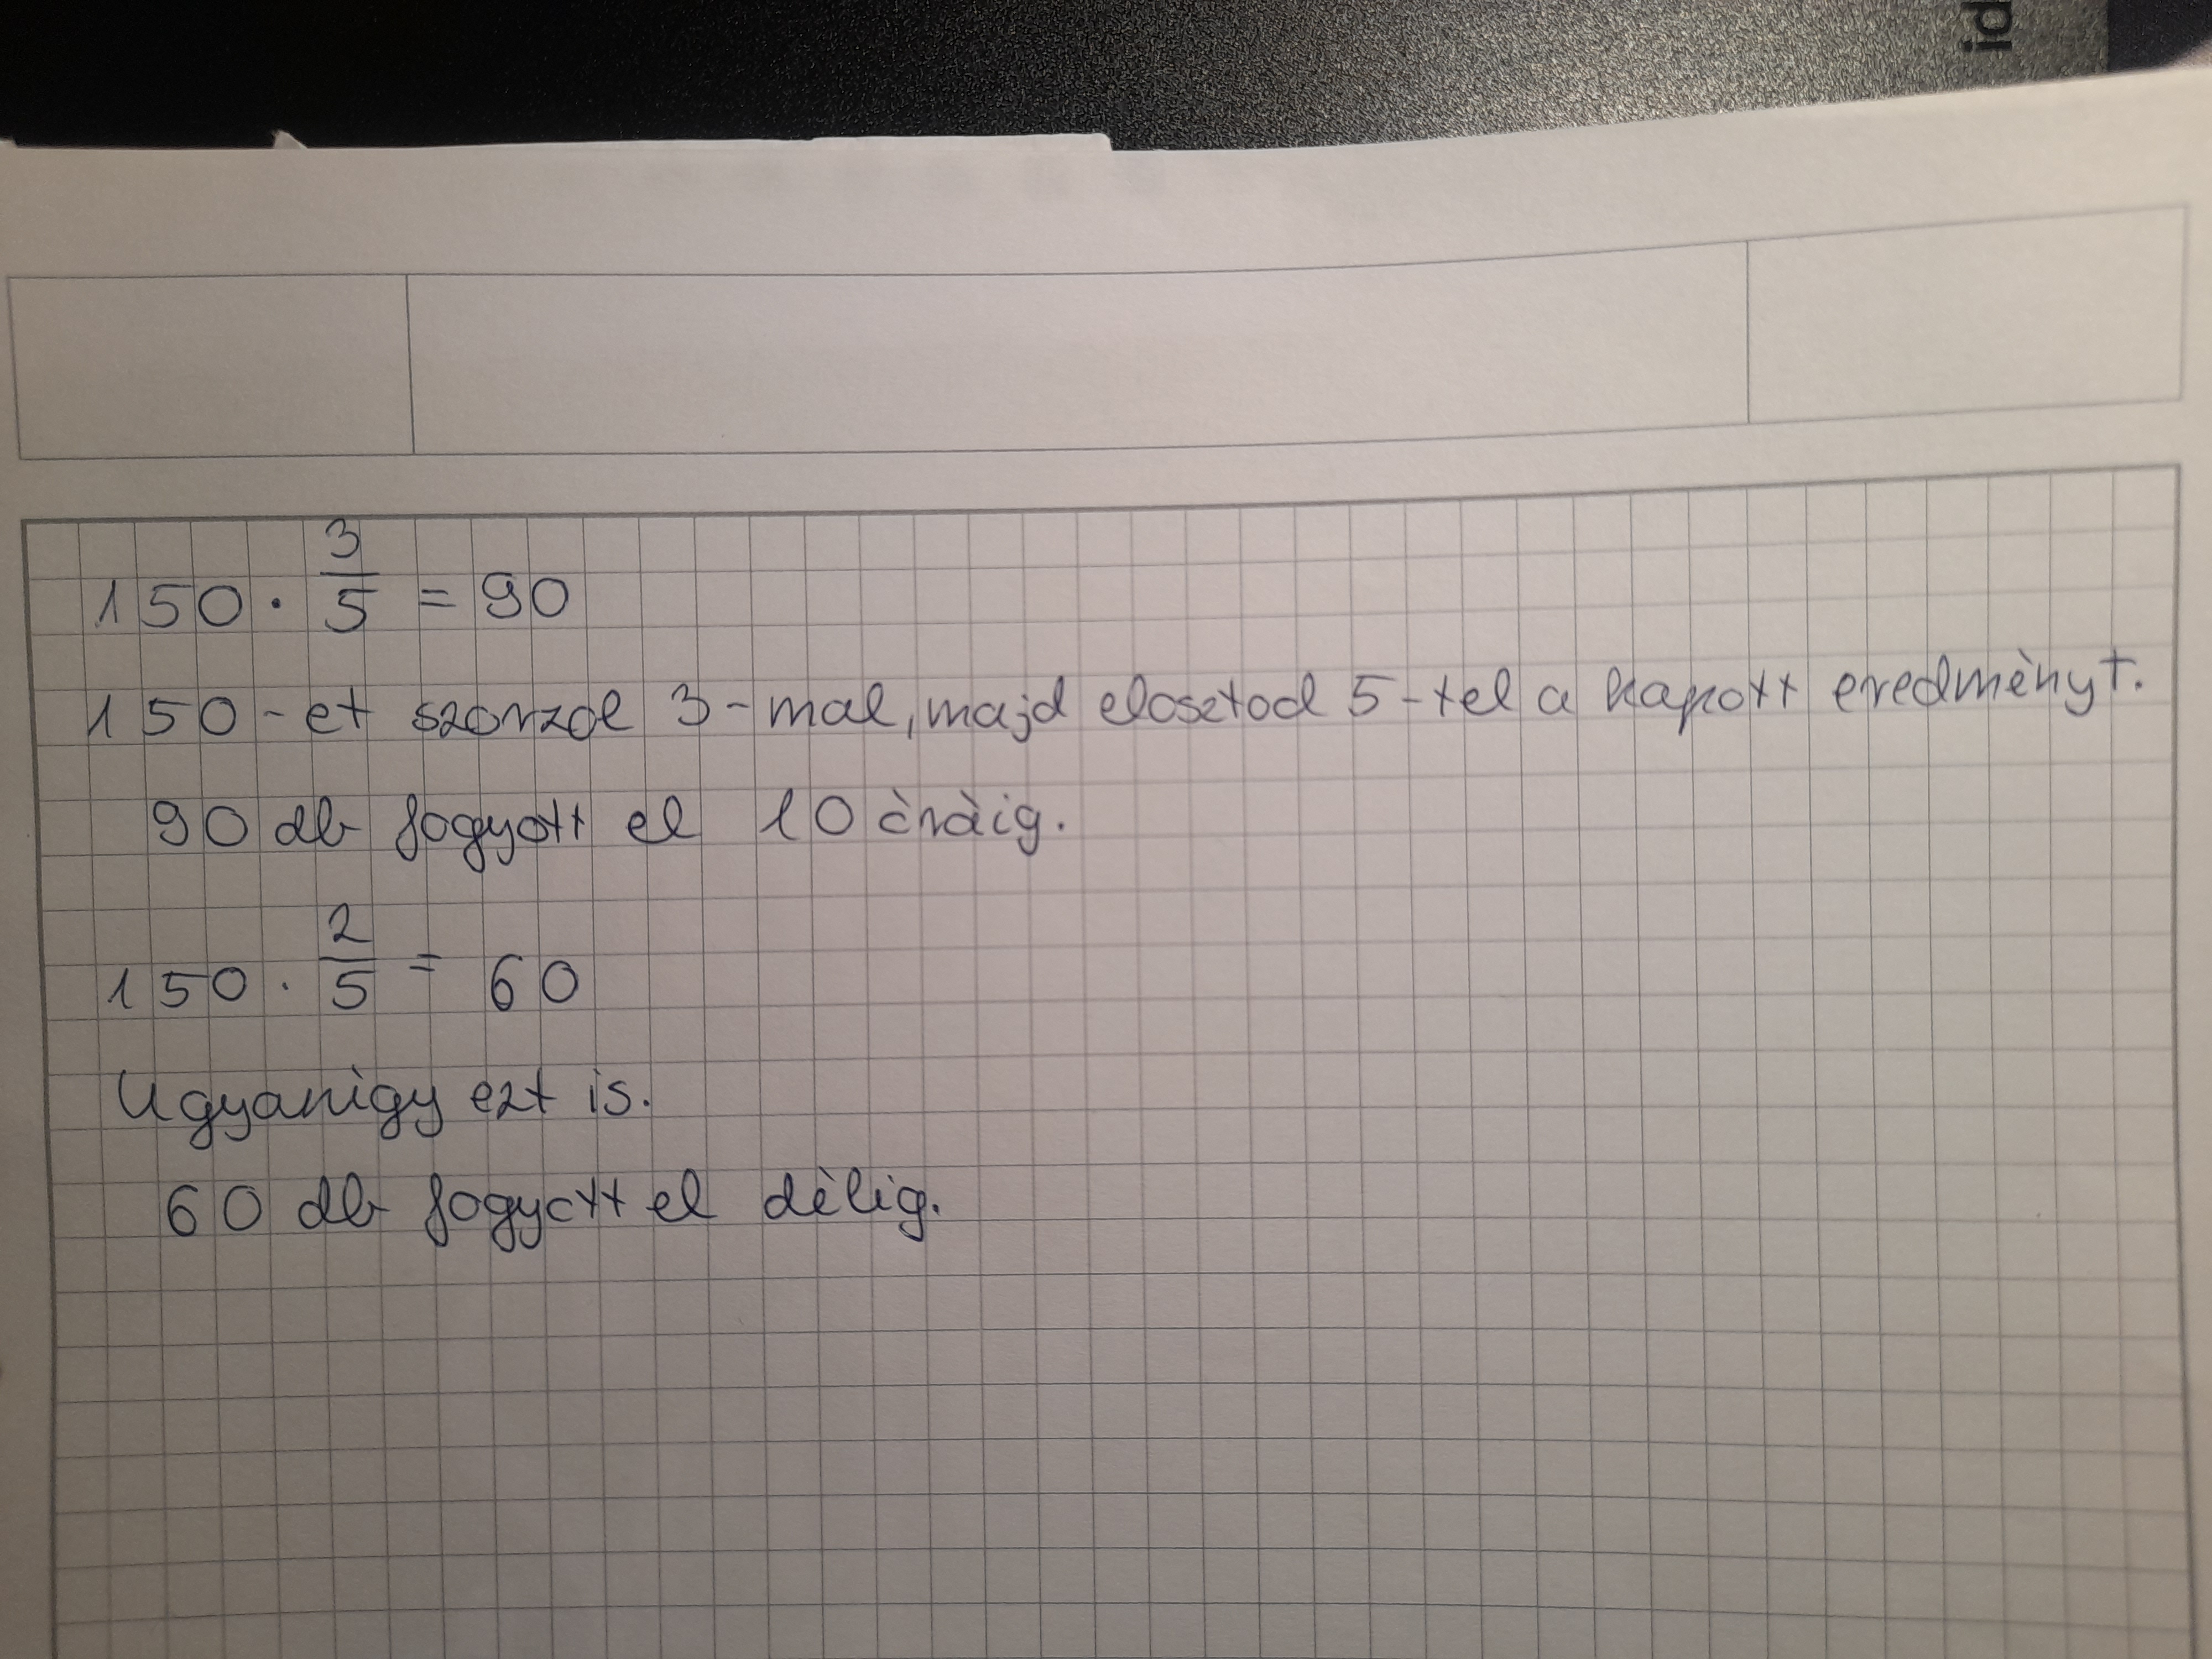 150 · 3/5 = 90
150-et szorzol 3-mal, majd elosztod 5-tel a kapott eredmènyt.
90 db fogyott el 10 òràig.
150 · 2/5 = 60
Ugyanìgy ezt is.
60 db fogyott el dèlig.
id